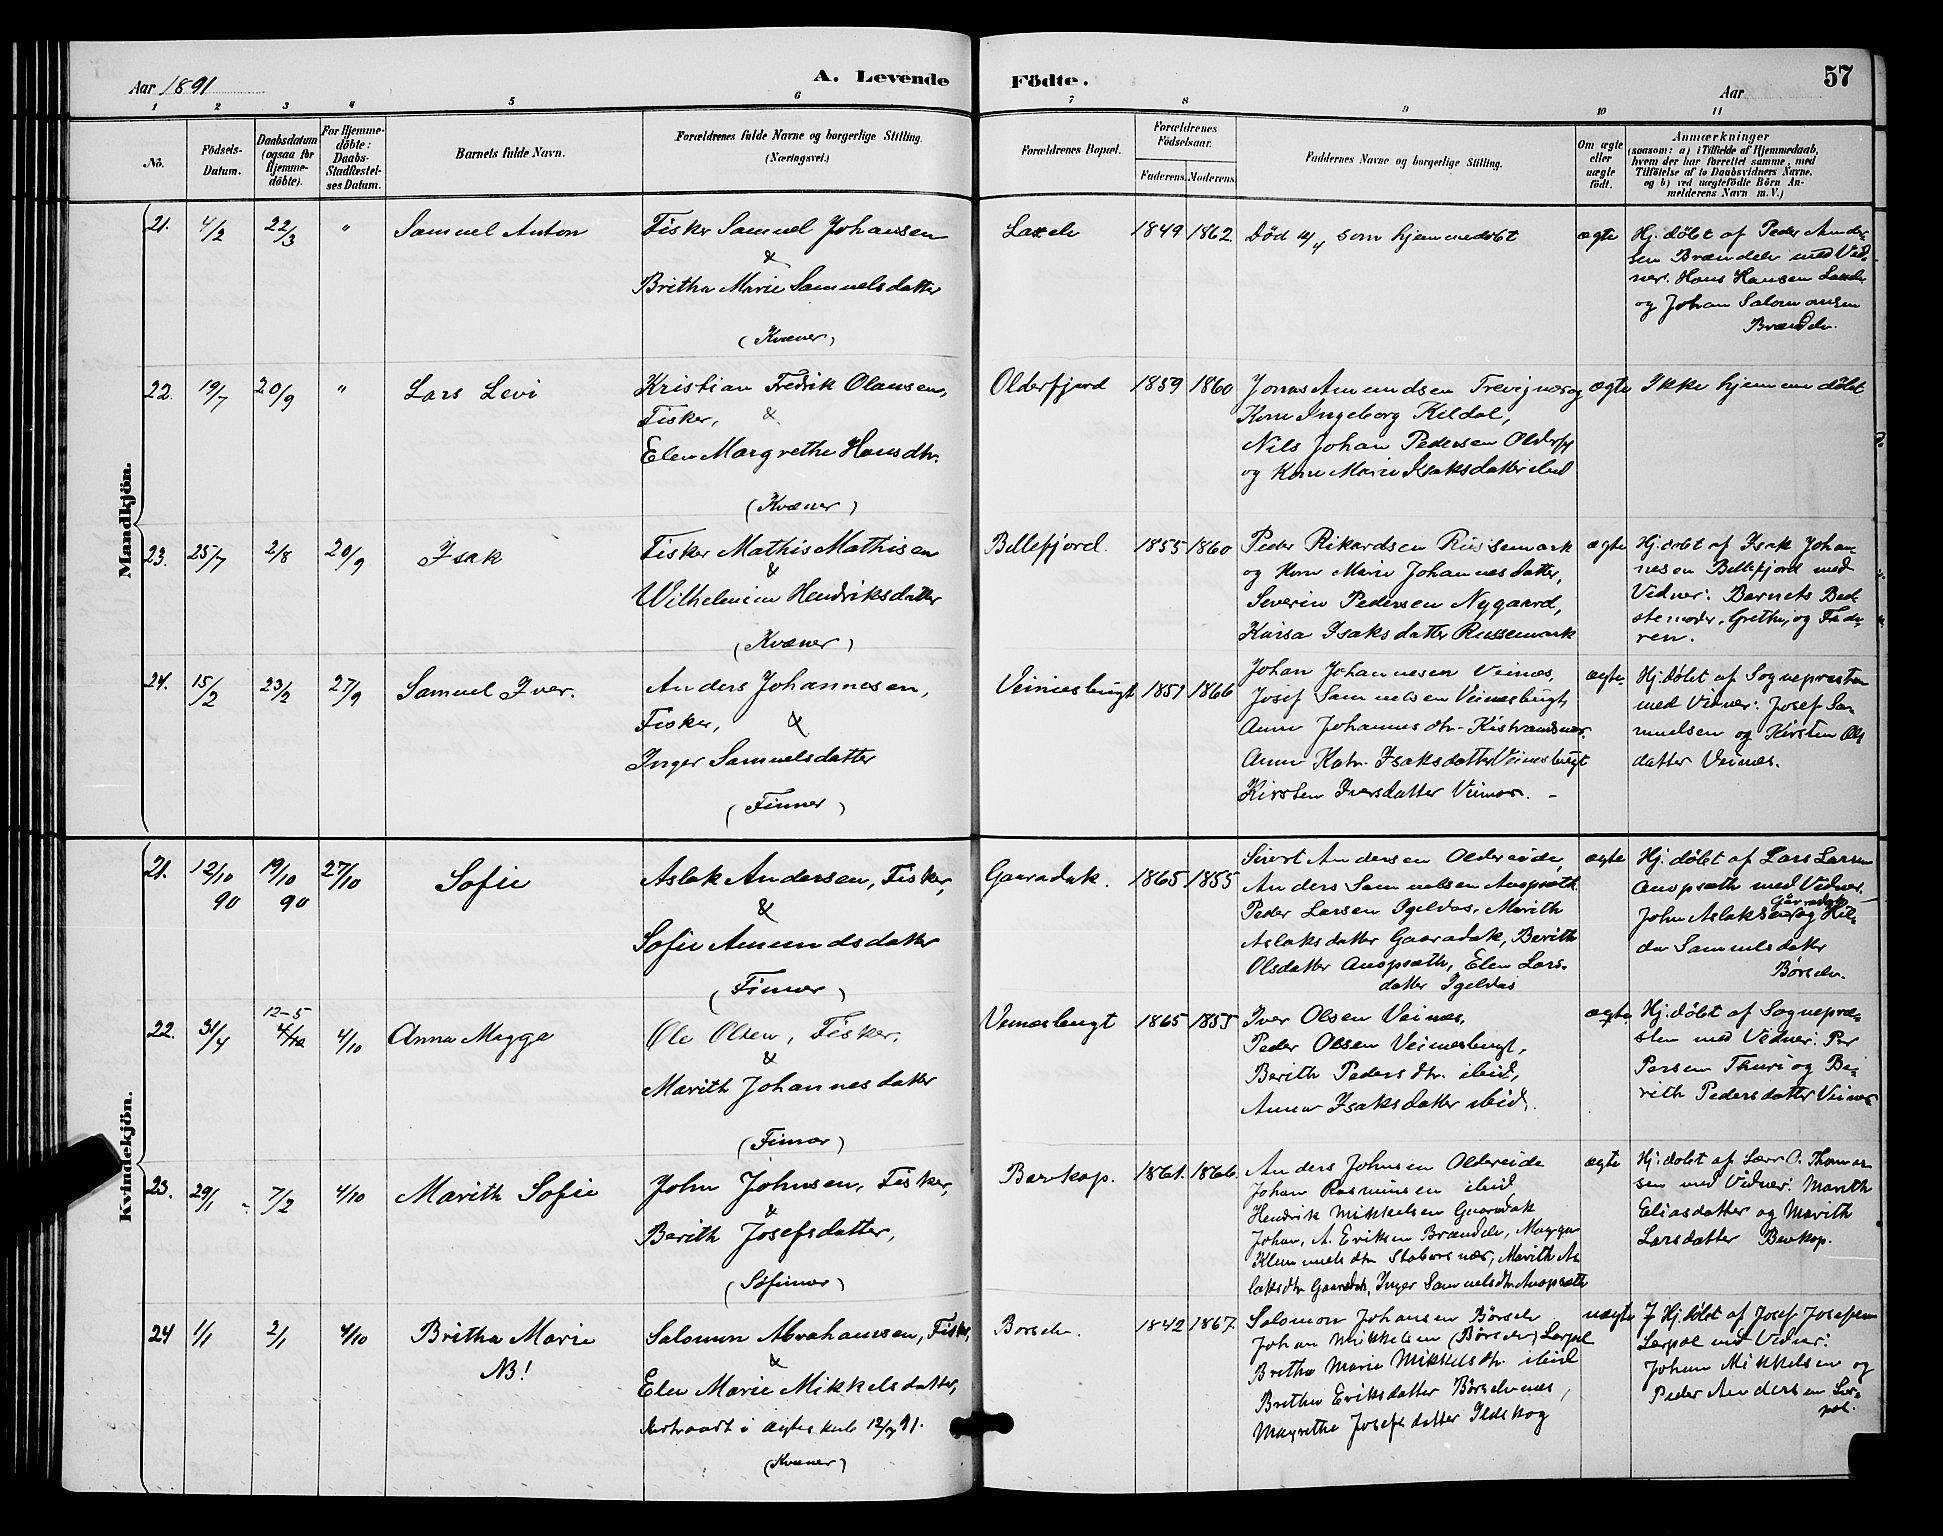 Aar 1891
A. Levende
Födte.
Aar
57
1 2 3 4 5 6 7 8 9 10 11
No.
Födsels-
Datum.
Daabsdatum
(ogsaa for
Hjemme-
döbte).
For Hjemme-
döbte:
Daabs-
Stadfæstel-
ses Datum.
Barnets fulde Navn.
Forældrenes fulde Navne og borgerlige Stilling.
(Næringsvei.)
Forældrenes Bopæl.
Forældrenes
Födselsaar.
Faderens. Moderens.
Faddernes Navne og borgerlig Stilling.
Om ægte
eller
uægte
födt.
Anmærkninger
(saasom: a) i Tilfælde af Hjemmedaab,
hvem der har forrettet samme, med
Tilföielse af to Daabsvidners Navne.
og b) ved uægtefödte Börn An-
melderens Navn m. V.)
Mandkjön.
21. 4/2 22/3 " Samuel Anton
Fisker Samuel Johansen
&
Britha Marie Samuelsdatter
(Kvæner)
1849 1862
Død som hjemmedøbt
ægte
Hj. døbt af Peder Ander-
sen Brændelv med Vid-
ner. Hans Hansen
og Johan Salomonsen
Brændelv.
22. 19/7 20/9 " Lars Levi
Kristian Fredrik Olausen,
Fisker, &
Elen Margrethe Hansdtr.
(Kvæner)
Olderfjord 1859 1860
Jonas Amundsen Trevignæs og
Kone Ingeborg Kildal,
Nils Johan Pedersen Olderfj
og Kone Marie Isaksdatter ibid
ægte
Ikke hjemmedøbt
23. 25/7 2/8 20/9 Isak
Fisker Mathis Mathisen
&
Wilhelmine Hendriksdatter
(Kvæner)
Billefjord. 1855 1860
Peder Rikardsen Russemark
og Kone Marie Johannesdatter,
Severin Pedersen Nygaard,
Kaisa Isaksdatter Russemark
ægte
Hj. døbt af Isak Johan-
nesen Billefjord med
Vidner: Barnets Bed-
stemoder, Grethe, og Fade-
ren.
24. 15/2 23/2 27/9 Samuel Iver.
Anders Johannesen,
Fisker, &
Inger Samuelsdatter
(Finner)
Veinesbugt 1851 1866
Johan Johannesen Veines,
Josef Samuelsen Veinesbugt,
Anne Johannesdtr. Kistrandnæs.
Anne Katr. Isaksdatter Veinesbugt
Kirsten Iversdatter Veines. -
ægte.
Hj. døbt af Sognepresten
med Vidner: Josef Sa-
muelsen og Kirsten Ols
datter Veines.
Kvindekjön.
21. 12/10 90 19/10 90 27/10 Sofie
Aslak Andersen, Fisker,
&
Sofie Amundsdatter
(Finner)
Gaaradak. 1865 1855
Sivert Andersen Oldereide,
Anders Samuelsen Anopsæth
Peder Larsen Igeldas, Marith
Aslaksdatter Gaaradak, Berith
Olsdatter Anopsæth, Elen Lars-
datter Igeldas
ægte
Hj. døbt af Lars Larsen
Anopsæth med Vidner.
Gaaradak
John Aslaksen og Hil-
da Samuelsdatter
Børselv.
22. 31/4 12-5 4/10 4/10 Anna Magga
Ole Olsen, Fisker,
&
Marith Johannesdatter
(Finner)
Veinesbugt 1865 1855
Iver Olsen Veines,
Peder Olsen Veinesbugt,
Berith Pedersdtr. ibid,
Anna Isaksdatter ibid.
ægte.
Hj. døbt af Sognepræ-
sten med Vidner: Per
Persen Thuri og Be-
rith Pedersdatter Veines
23. 29/1 7/2 4/10 Marith Sofie
John Johnsen, Fisker,
&
Berith Josefsdatter,
(Søfinner)
Børkop. 1861. 1866.
Anders Johnsen Oldereide
Johan Rasmussen ibid
Hendrik Mikkelsen Gaaradak
Johan, A. Eriksen Brændelv, Magga
Klemmetsdtr. Stabursnæs, Marith As-
laksdtr. Gaaradak, Inger Samuelsdtr. Anopsæth
ægte
Hj. døbt af Lærer O. Thomas-
sen med Vidner: Marith
Eliasdatter og Marith
Larsdatter Børkop.
24 1/1 2/1 4/10 Britha Marie
NB!
Salomon Abrahamsen, Fisker,
&
Elen Marie Mikkelsdatter,
indtraadt i ægteskab 12/7 91.
(Kvæner)
Børselv. 1842 1867.
Salomon Johansen Børselv
Johan Mikkelsen (Børselv) Lerpol
Britha Marie Mikkelsdtr. ibid
Britha Eriksdatter Børselvnæs,
Magrethe Josefsdatter Ildskog
uægte
Hj. døbt af Josef Josefsen
Lerpol med Vidner:
Johan Mikkelsen og
Peder Andersen Ler-
pol.